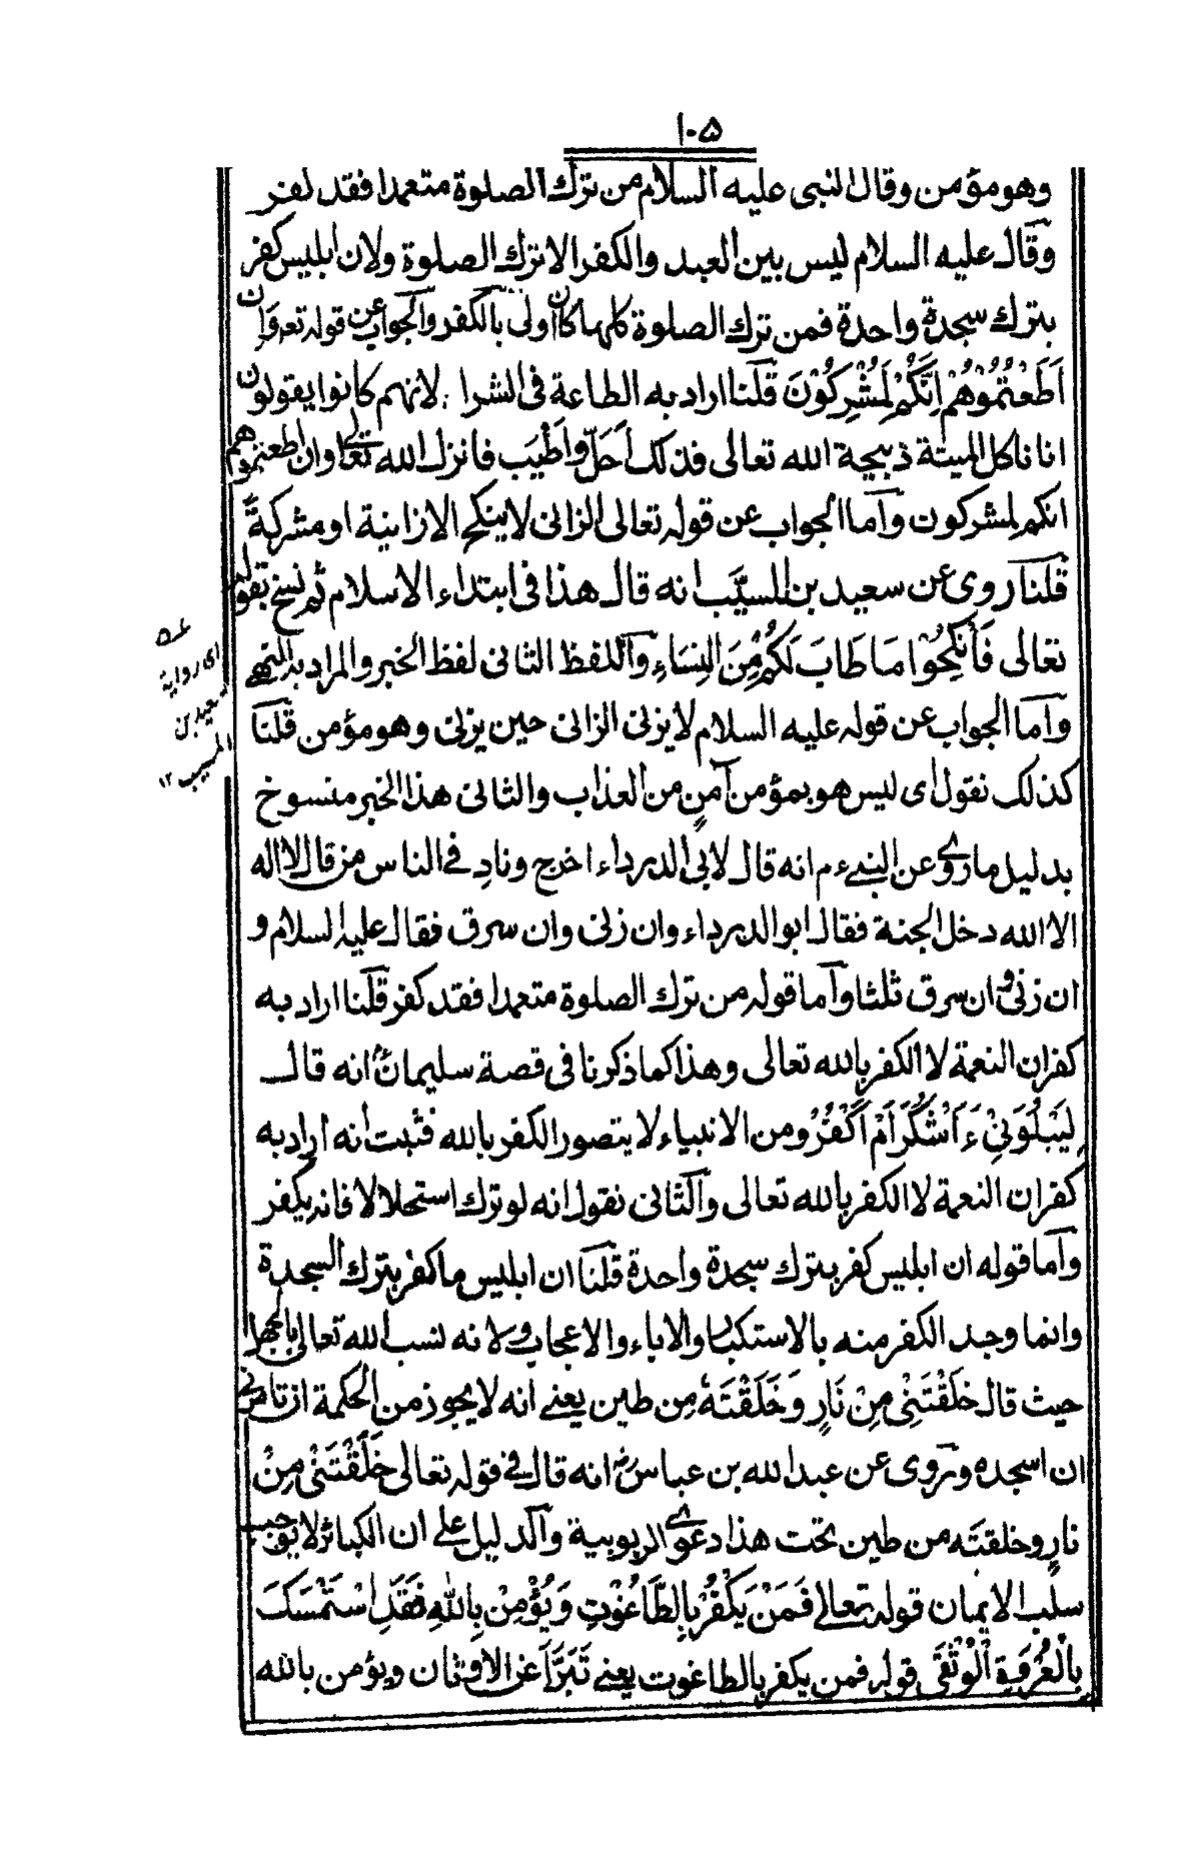 ١٠٥
وهو مؤمن وقال النبى عليه السلام من ترك الصلوة متعمدا فقد كفر
وقال عليه السلام ليس بين العبد والكفر الا ترك الصلوة ولان ابليس كفر
بترك سجدة واحدة فمن ترك الصلوة كلها كان اولى بالكفر والجواب عن قوله تعه وَاِن
اَطَعْتُمُوْهُمْ اِنَّكُمْ لَمُشْرِكُوْنَ قلنا اراد به الطاعة فى الشرا لانهم كانوا يقولون
انا ناكل الميتة ذبيحة الله تعالى فذلك اَحَلّ واَطْيَب فانزل الله تعالى وان اطعتموهم
انكم لمشركون واما الجواب عن قوله تعالى الزانى لا ينكح الا زانية او مشركةً
قلنا روى عن سعيد بن المسيَّب انه قال هذا فى ابتداء الاسلام ثم نسخ بقوله
تعالى فَانْكِحُوْا مَا طَابَ لَكُمْ مِّنَ النِّسَاءِ واللفظ الثانى لفظ الخبر والمراد به النهى
واما الجواب عن قوله عليه السلام لا يزنى الزانى حين يزنى وهو مؤمن قلنا
كذلك نقول اى ليس هو بمؤمن آمنٍ من العذاب والثانى هذا الخبر منسوخ
بدليل ما روى عن النبى ءم انه قال لابى الدرداء اخرج ونادِ فى الناس من قال لا اله
الا الله دخل الجنة فقال ابو الدرداء وان زنى وان سرق فقال عليه السلام و
ان زنى وان سرق ثلثا واما قوله من ترك الصلوة متعمدا فقد كفر قلنا اراد به
كفران النعمة لا الكفر بالله تعالى وهذا كما ذكرنا فى قصة سليمان انه قال
لِيَبْلُوَنِىْ ءَاَشْكُرُ اَمْ اَكْفُرُ ومن الانبياء لا يتصور الكفر بالله فثبت انه اراد به
كفران النعمة لا الكفر بالله تعالى والثانى نقول انه لو ترك استحلالا فانه يكفر
واما قوله ان ابليس كفر بترك سجدة واحدة قلنا ان ابليس ما كفر بترك السجدة
وانما وجد الكفر منه بالاستكبار والاباء والاعجاب ولانه نسب الله تعالى بالجهل
حيث قال خَلَقْتَنِىْ مِنْ نَارٍ وَخَلَقْتَهٗ مِن طين يعنى انه لا يجوز من الحكمة ان تامرنى
ان اسجده وروى عن عبد الله بن عباس رض انه قال فى قوله تعالى خَلَقْتَنِىْ مِنْ
نارٍ وخلقته من طين تحت هذا دعوى الربوبية والدليل على ان الكبائر لا يوجب
سلب الايمان قوله تعالى فَمَنْ يَكْفُرْ بِالطَّاغُوْتِ وَيُؤْمِنْ بِاللهِ فَقَدِ اسْتَمْسَكَ
بِالْعُرْوَةِ الْوُثْقَى قوله فمن يكفر بالطاغوت يعنى تَبَرَّأَ عن الاوثان ويؤمن بالله
اى رواية
سعيد بن
المسيب ١٢